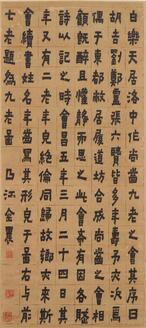 白樂天居洛中作尚齒九老之會其序曰
胡吉劉鄭盧張六賢皆多年壽予次焉
偶于東都敝居履道坊合成尚齒之會
顧既醉甚懽靜而思之此會希有各賦
詩以記之時會昌五年三月二十四日其
年又有二老年皃絕倫同歸故鄉亦來斯
會續書姓名年齒寫其形皃於右與前
七老題為九老圖 金農